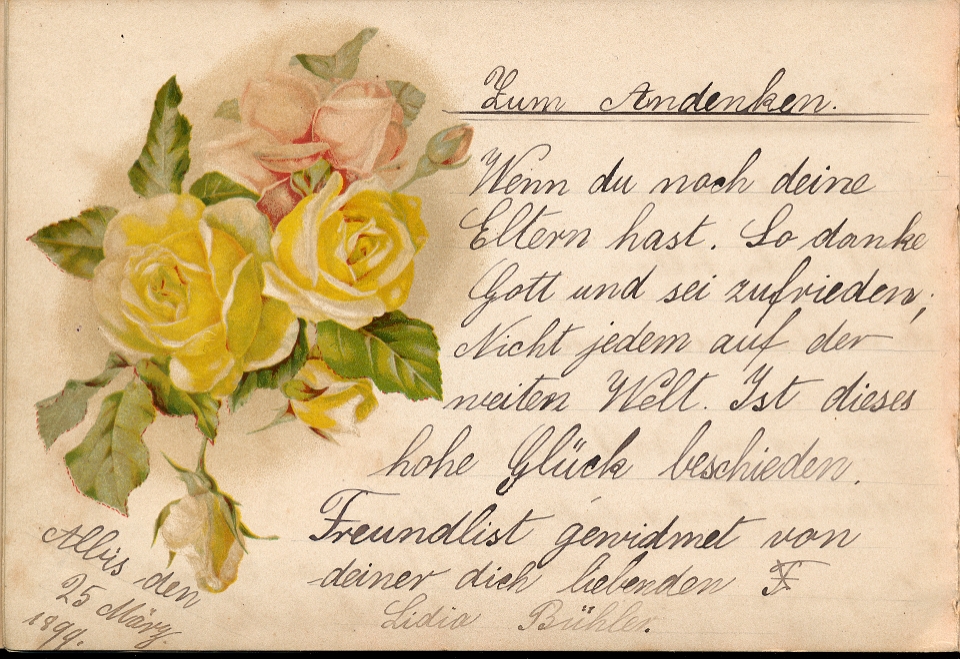 Zum Andenken.
Wenn du noch deine
Eltern hast. So danke
Gott und sei zufrieden;
Nicht jedem auf der
weiten Welt. Ist dieses
hohe Glück beschieden.
Freundlist gewidmet von
deiner dich liebenden F
Lidia Bühler.
Albis den
25 März.
1899.